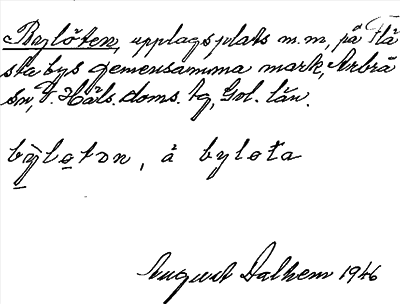 Bylöten, upplagsplats m.m, på Flä
sta bys gemensamma mark, Arbrå
sn, V. Häls. doms. tg, Gvl. län.
by̆lo̱tɔn, å bylota
August Dalhem 1946